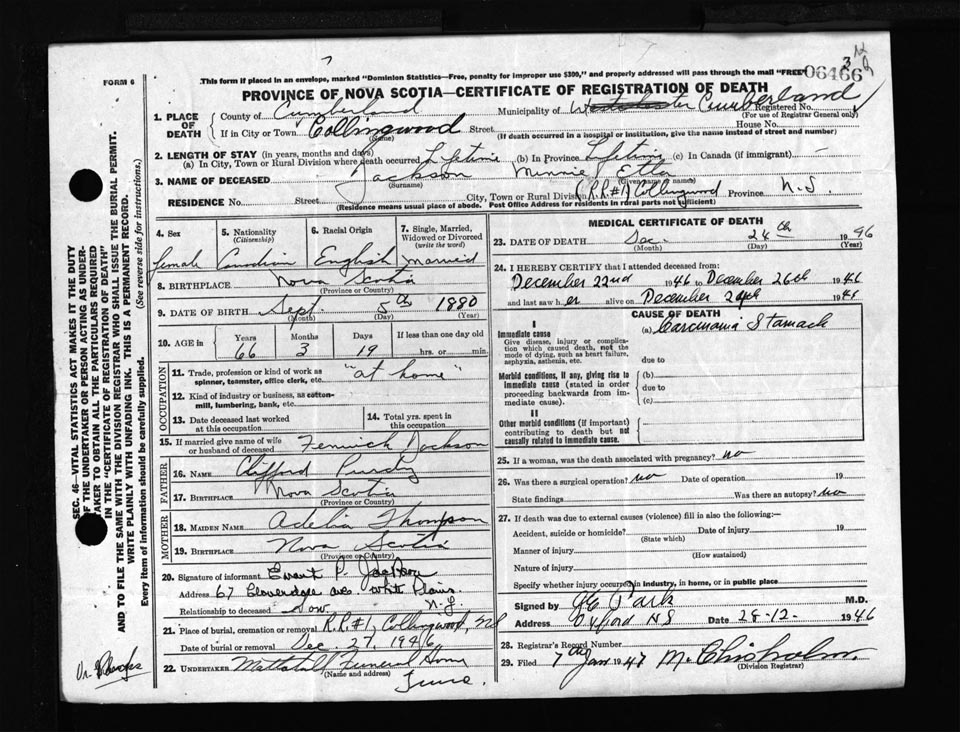 This form if placed in an envelope, marked "Dominion Statistics—Free, penalty for improper use $300," and properly addressed will pass through the mail "FREE"
FORM 6
06466
PROVINCE OF NOVA SCOTIA—CERTIFICATE OF REGISTRATION OF DEATH
1. PLACE OF DEATH County of Cumberland Municipality of Westchester Cumberland Registered No.
(For use of Registrar General only)
If in City or Town Collingwood Street House No.
(Name) (If death occurred in a hospital or institution, give the name instead of street and number)
2. LENGTH OF STAY (in years, months and days)
(a) In City, Town or Rural Division where death occurred Lifetime (b) In Province Lifetime (c) In Canada (if immigrant) —
3. NAME OF DECEASED Jackson Minnie Etta
(Surname) (Given names)
RESIDENCE No. Street City, Town or Rural Division (R.R.#1) Collingwood Province N.S.
(Residence means usual place of abode. Post Office Address for residents in rural parts not sufficient)
4. Sex 5. Nationality (Citizenship) 6. Racial Origin 7. Single, Married, Widowed or Divorced (write the word)
female Canadian English Married
8. BIRTHPLACE Nova Scotia
(Province or Country)
9. DATE OF BIRTH Sept. 5th 1880
(Month) (Day) (Year)
10. AGE in Years Months Days If less than one day old
66 3 19 hrs. or min.
OCCUPATION
11. Trade, profession or kind of work as spinner, teamster, office clerk, etc. "at home"
12. Kind of industry or business, as cotton-mill, lumbering, bank, etc.
13. Date deceased last worked at this occupation 14. Total yrs. spent in this occupation
15. If married give name of wife or husband of deceased Fenwick Jackson
FATHER
16. NAME Clifford Purdy
17. BIRTHPLACE Nova Scotia
(Province or Country)
MOTHER
18. MAIDEN NAME Adelia Thompson
19. BIRTHPLACE Nova Scotia
(Province or Country)
20. Signature of informant P. Jackson
Address 67 ave White Plains
N.Y.
Relationship to deceased Son
21. Place of burial, cremation or removal R.R.#1, Collingwood, N.S.
Date of burial or removal Dec 27, 1946
22. UNDERTAKER Mattatall Funeral Home
(Name and address)
Truro.
MEDICAL CERTIFICATE OF DEATH
23. DATE OF DEATH Dec. 24th 1946
(Month) (Day) (Year)
24. I HEREBY CERTIFY that I attended deceased from:
December 22nd 1946 to December 26th 1946
and last saw her alive on December 1946
CAUSE OF DEATH
I
Immediate cause (a) Carcinoma Stomach
Give disease, injury or complication which caused death, not the mode of dying, such as heart failure, asphyxia, asthenia, etc.
due to
Morbid conditions, if any, giving rise to immediate cause (stated in order proceeding backwards from immediate cause). (b)
due to
(c)
II
Other morbid conditions (if important) contributing to death but not causally related to immediate cause.
25. If a woman, was the death associated with pregnancy? no
26. Was there a surgical operation? no Date of operation 19
State findings Was there an autopsy? no
27. If death was due to external causes (violence) fill in also the following:
Accident, suicide or homicide? Date of injury 19
(State which)
Manner of injury
(How sustained)
Nature of injury
Specify whether injury occurred in industry, in home, or in public place
Signed by Park M.D.
Address Oxford NS Date 28-12- 1946
28. Registrar's Record Number
29. Filed 7 Jan 1947 M. Chisholm.
(Division Registrar)
SEC. 46—VITAL STATISTICS ACT MAKES IT THE DUTY
OF THE UNDERTAKER OR PERSON ACTING AS UNDERTAKER TO OBTAIN ALL THE PARTICULARS REQUIRED
IN THE "CERTIFICATE OF REGISTRATION OF DEATH"
AND TO FILE THE SAME WITH THE DIVISION REGISTRAR WHO SHALL ISSUE THE BURIAL PERMIT.
WRITE PLAINLY WITH UNFADING INK. THIS IS A PERMANENT RECORD.
Every item of information should be carefully supplied. (See reverse side for instructions.)